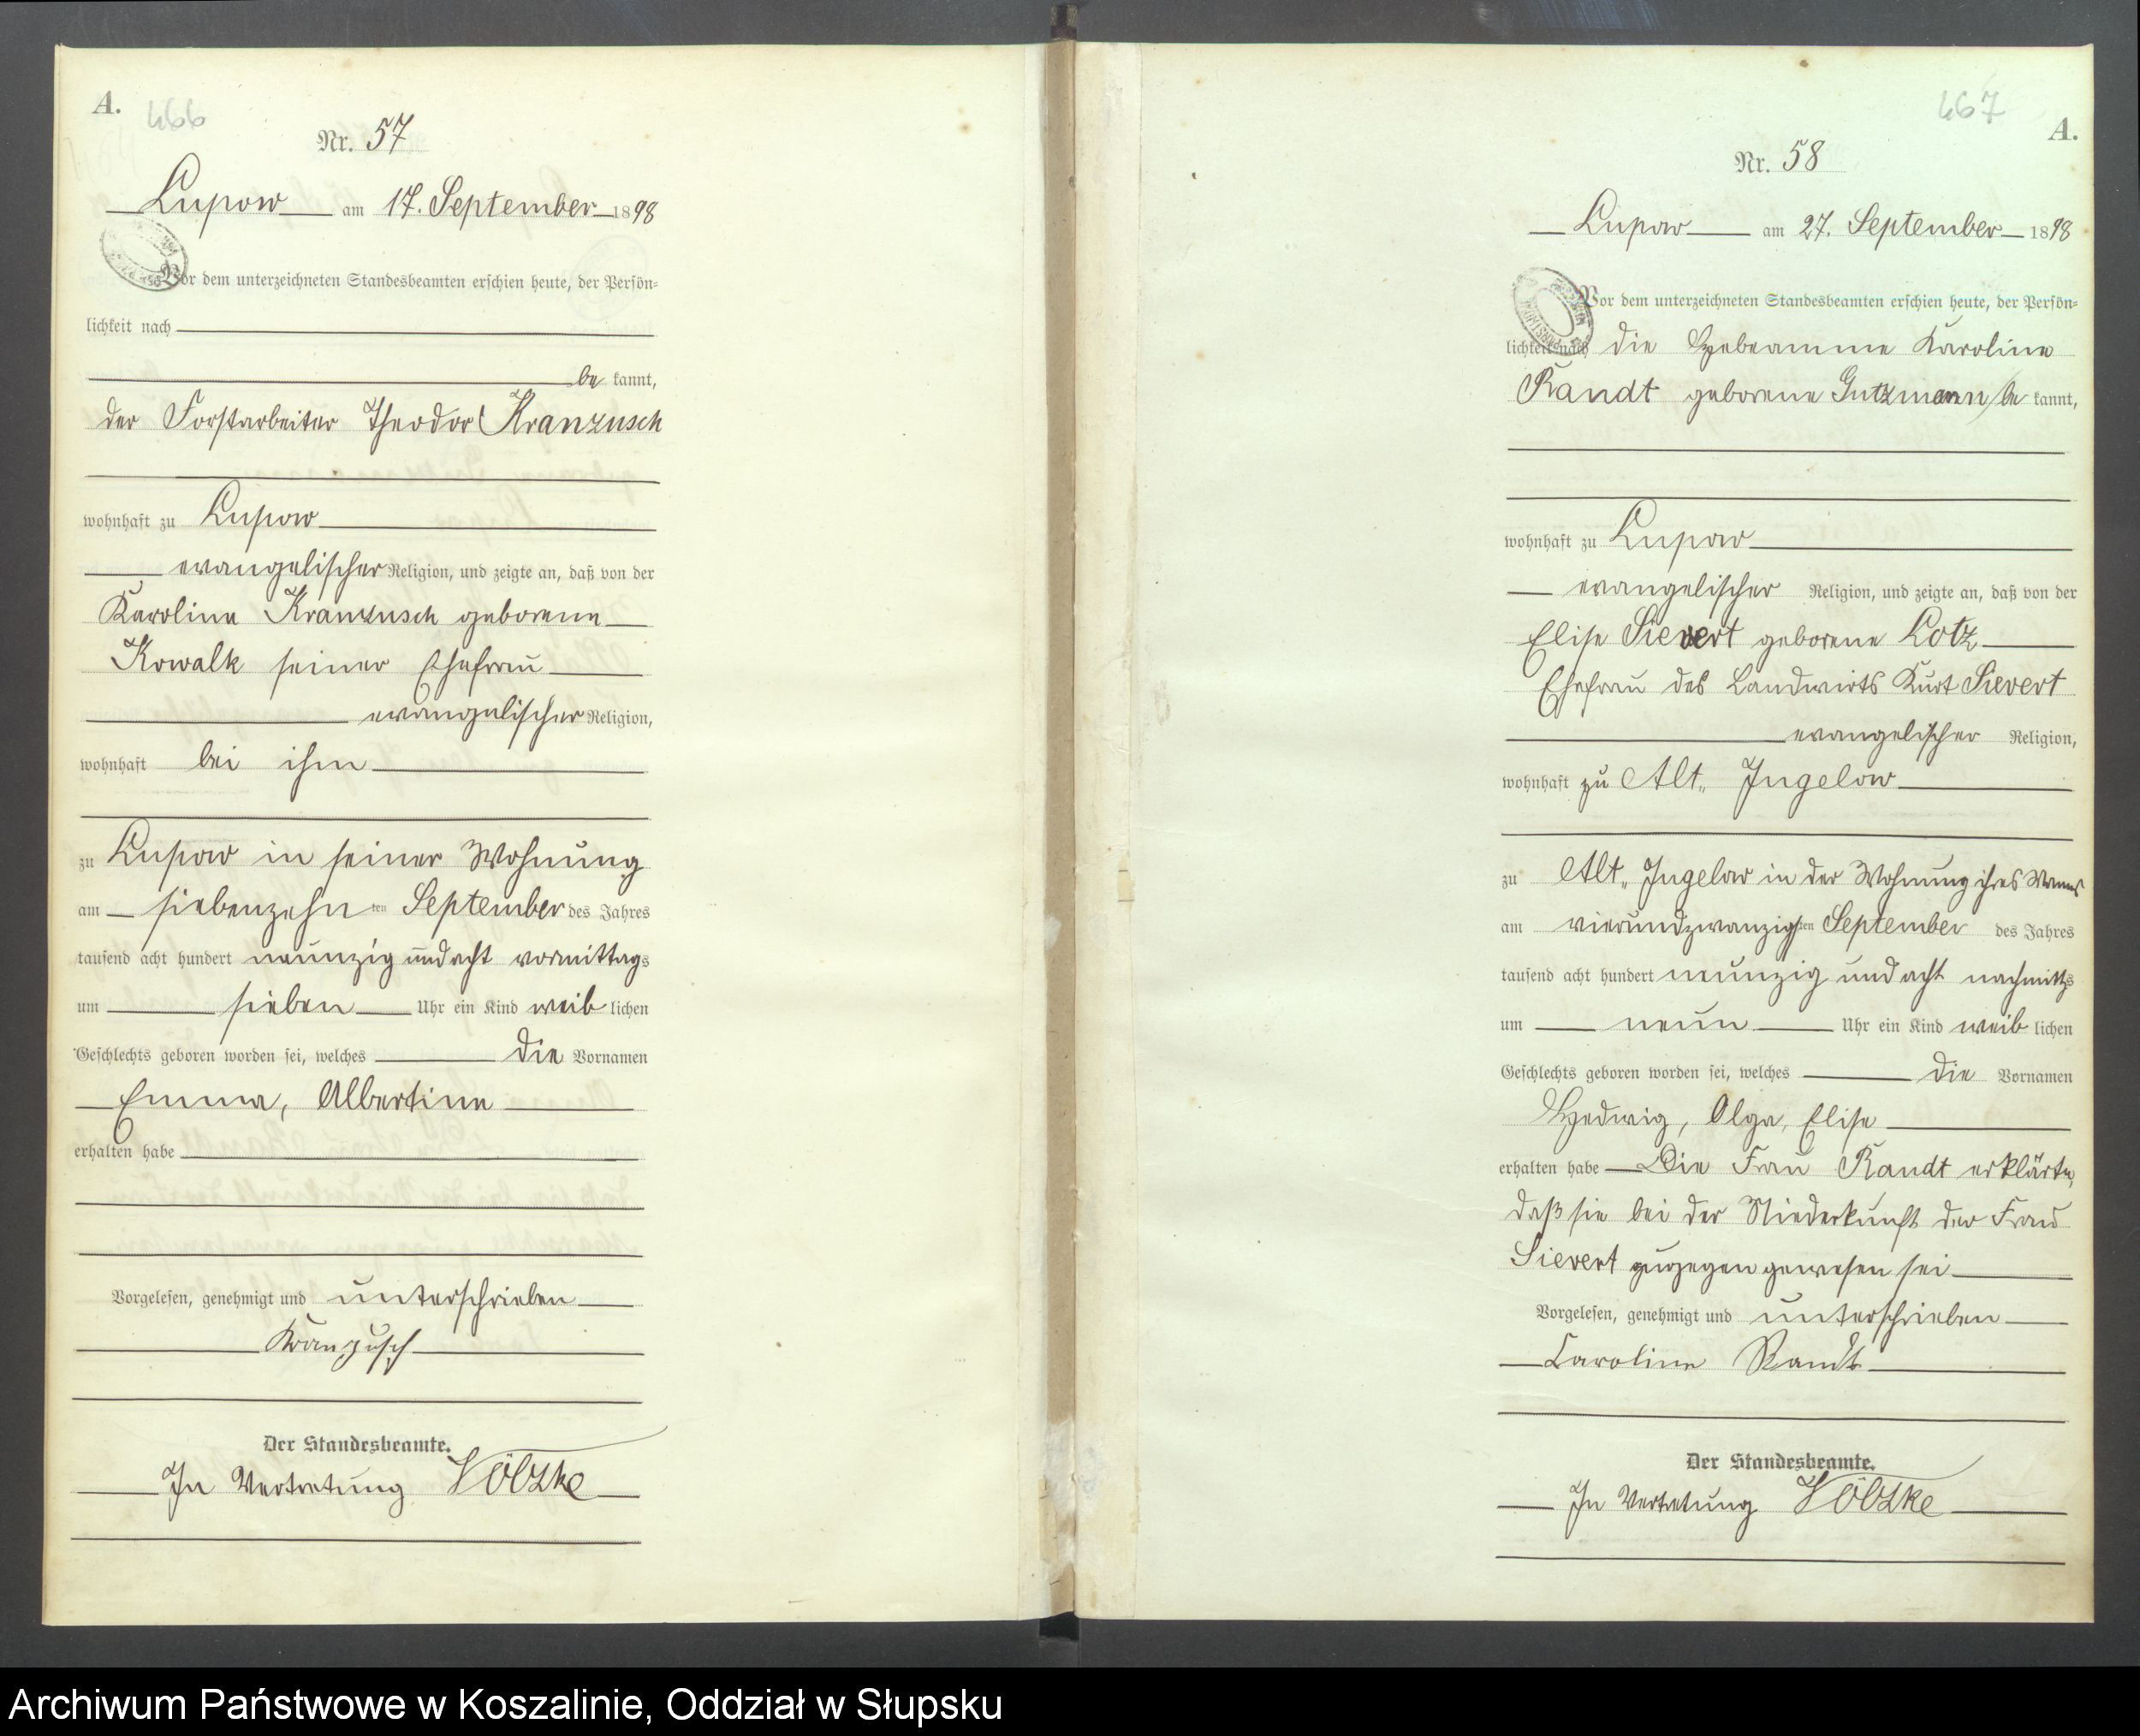 A.
466
Nr. 57
Lupow am 17. September 1898
Vor dem unterzeichneten Standesbeamten erschien heute, der Persön=
lichkeit nach
be kannt,
der Forstarbeiter Theodor Kranzusch
wohnhaft zu Lupow
evangelischer Religion, und zeigte an, daß von der
Karoline Kranzusch geborene
Kowalk seiner Ehefrau
evangelischer Religion,
wohnhaft bei ihm
zu Lupow in seiner Wohnung
am siebenzehn ten September des Jahres
tausend acht hundert neunzig und acht vormittags
um sieben Uhr ein Kind weib lichen
Geschlechts geboren worden sei, welches die Vornamen
Emma, Albertine
erhalten habe
Vorgelesen, genehmigt und unterschrieben
Kranzusch
Der Standesbeamte.
In Vertretung Völzke
467
A.
Nr. 58
Lupow am 27. September 1898
Vor dem unterzeichneten Standesbeamten erschien heute, der Persön=
lichkeit nach die Hebeamme Karoline
Randt geborene Gutzmann be kannt,
wohnhaft zu Lupow
evangelischer Religion, und zeigte an, daß von der
Elise Sievert geborene Lotz
Ehefrau des Landwirts Kurt Sievert
evangelischer Religion,
wohnhaft zu Alt„ Jugelow
zu Alt„ Jugelow in der Wohnung ihres Mannes
am vierundzwanzigsten September des Jahres
tausend acht hundert neunzig und acht nachmittgs
um neun Uhr ein Kind weib lichen
Geschlechts geboren worden sei, welches die Vornamen
Hedwig, Olga, Elise
erhalten habe Die Frau Randt erklärte,
daß sie bei der Niederkunft der Frau
Sievert zugegen gewesen sei
Vorgelesen, genehmigt und unterschrieben
Caroline Randt
Der Standesbeamte.
In Vertretung Völzke
Archiwum Państwowe w Koszalinie, Oddział w Słupsku